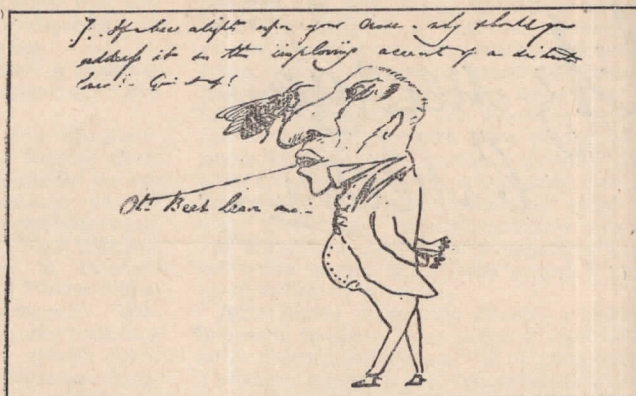 7. If a bee alight upon your nose - why should you
address it in the imploring accent of a distant
Give it up!
Oh! leave me -